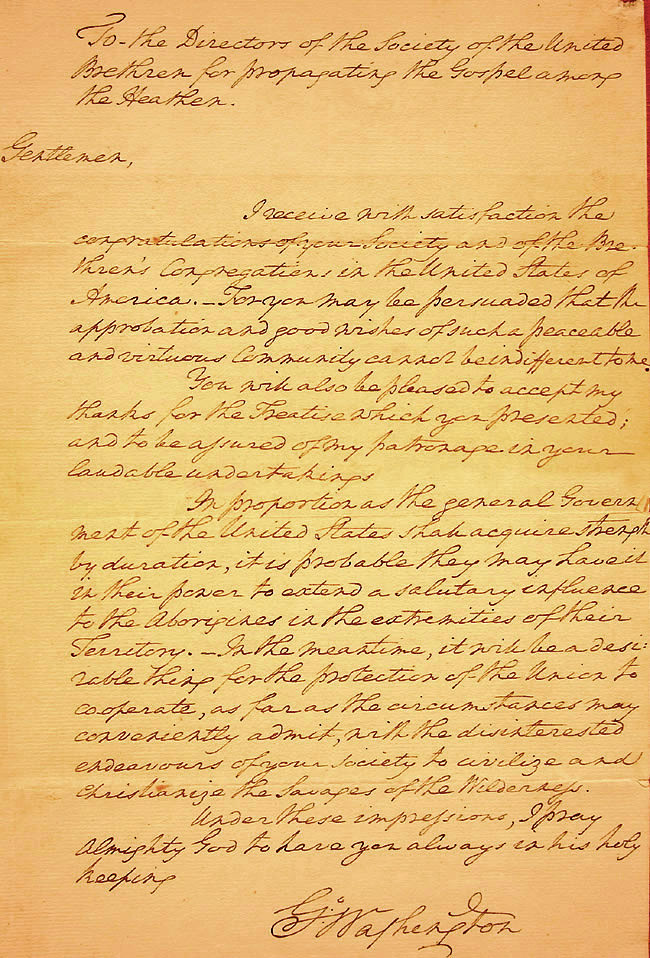 To the Directors of the Society of the United
Brethren for propagating the Gospel among
the Heathen.
Gentlemen,
I receive with satisfaction the
congratulations of your Society and of the Bre-
thren's Congregations in the United States of
America. — For you may be persuaded that the
approbation and good wishes of such a peaceable
and virtuous Community cannot be indifferent to me.
You will also be pleased to accept my
thanks for the Treatise which you presented;
and to be assured of my patronage in your
laudable undertakings
In proportion as the general Govern
ment of the United States shall acquire strength
by duration, it is probable they may have it
in their power to extend a salutary influence
to the Aborigines in the extremities of their
Territory. — In the meantime, it will be a desi:
rable thing for the protection of the Union to
cooperate, as far as the circumstances may
conveniently admit, with the disinterested
endeavours of your Society to civilize and
Christianize the Savages of the Wilderness.
Under these impressions, I pray
Almighty God to have you always in his holy
keeping
Go. Washington